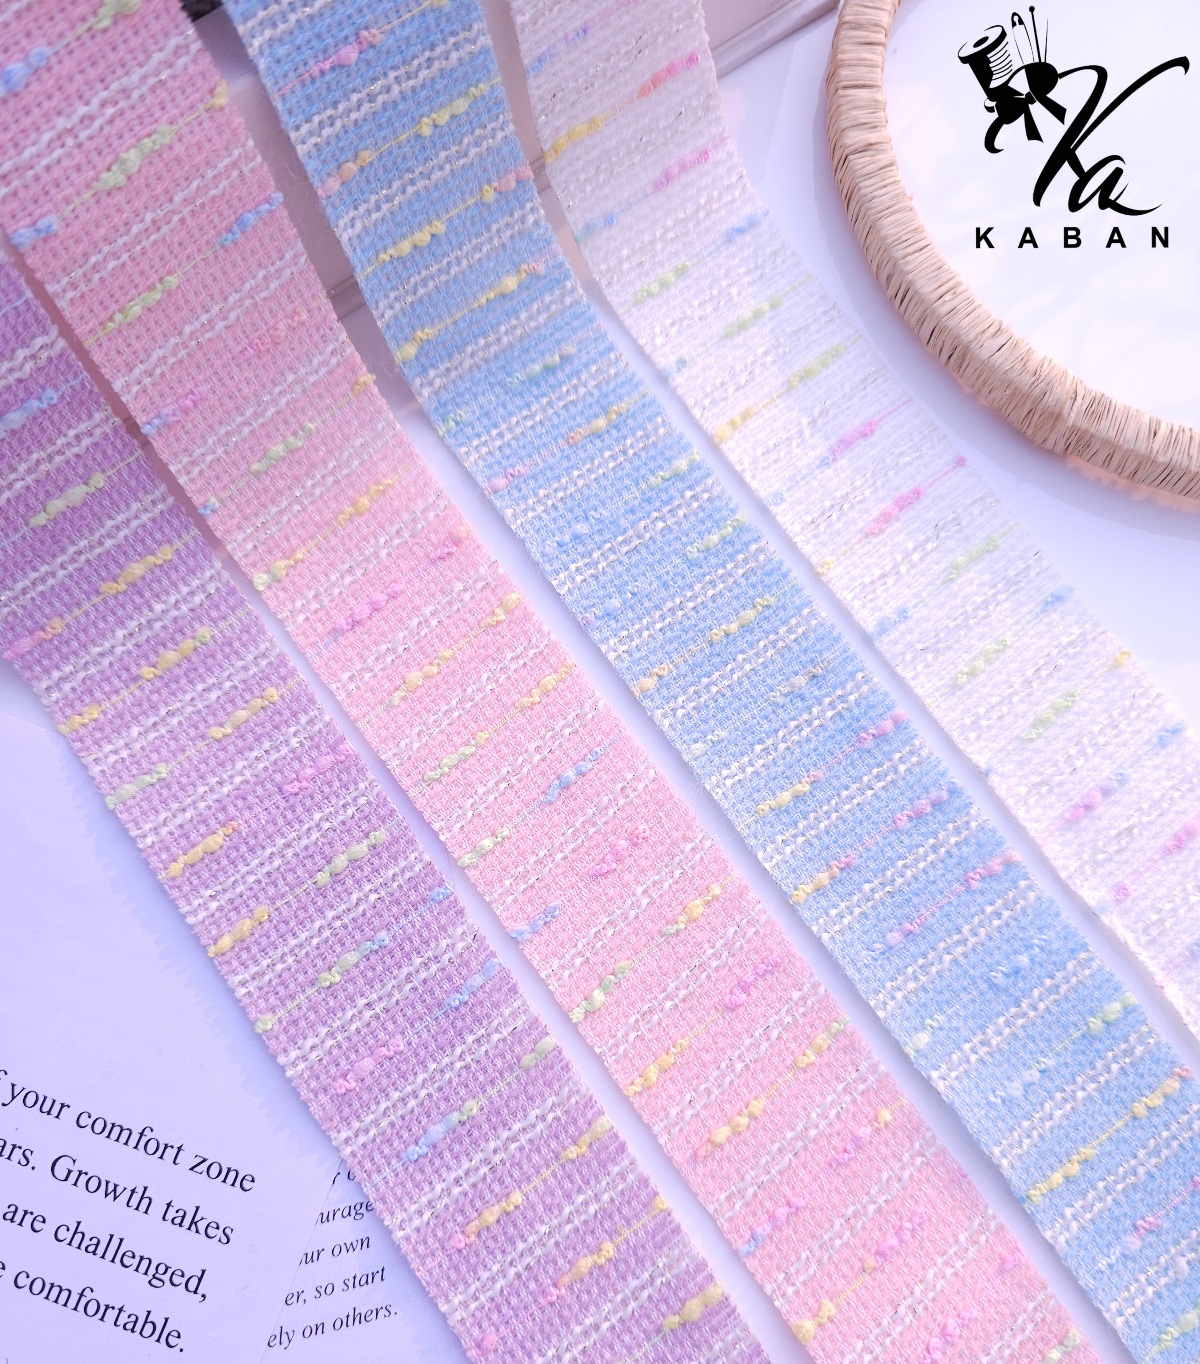 Ka
KABAN
f your comfort zone
ars. Growth takes
are challenged,
e comfortable.
urage
ur own
er, so start
ely on others.